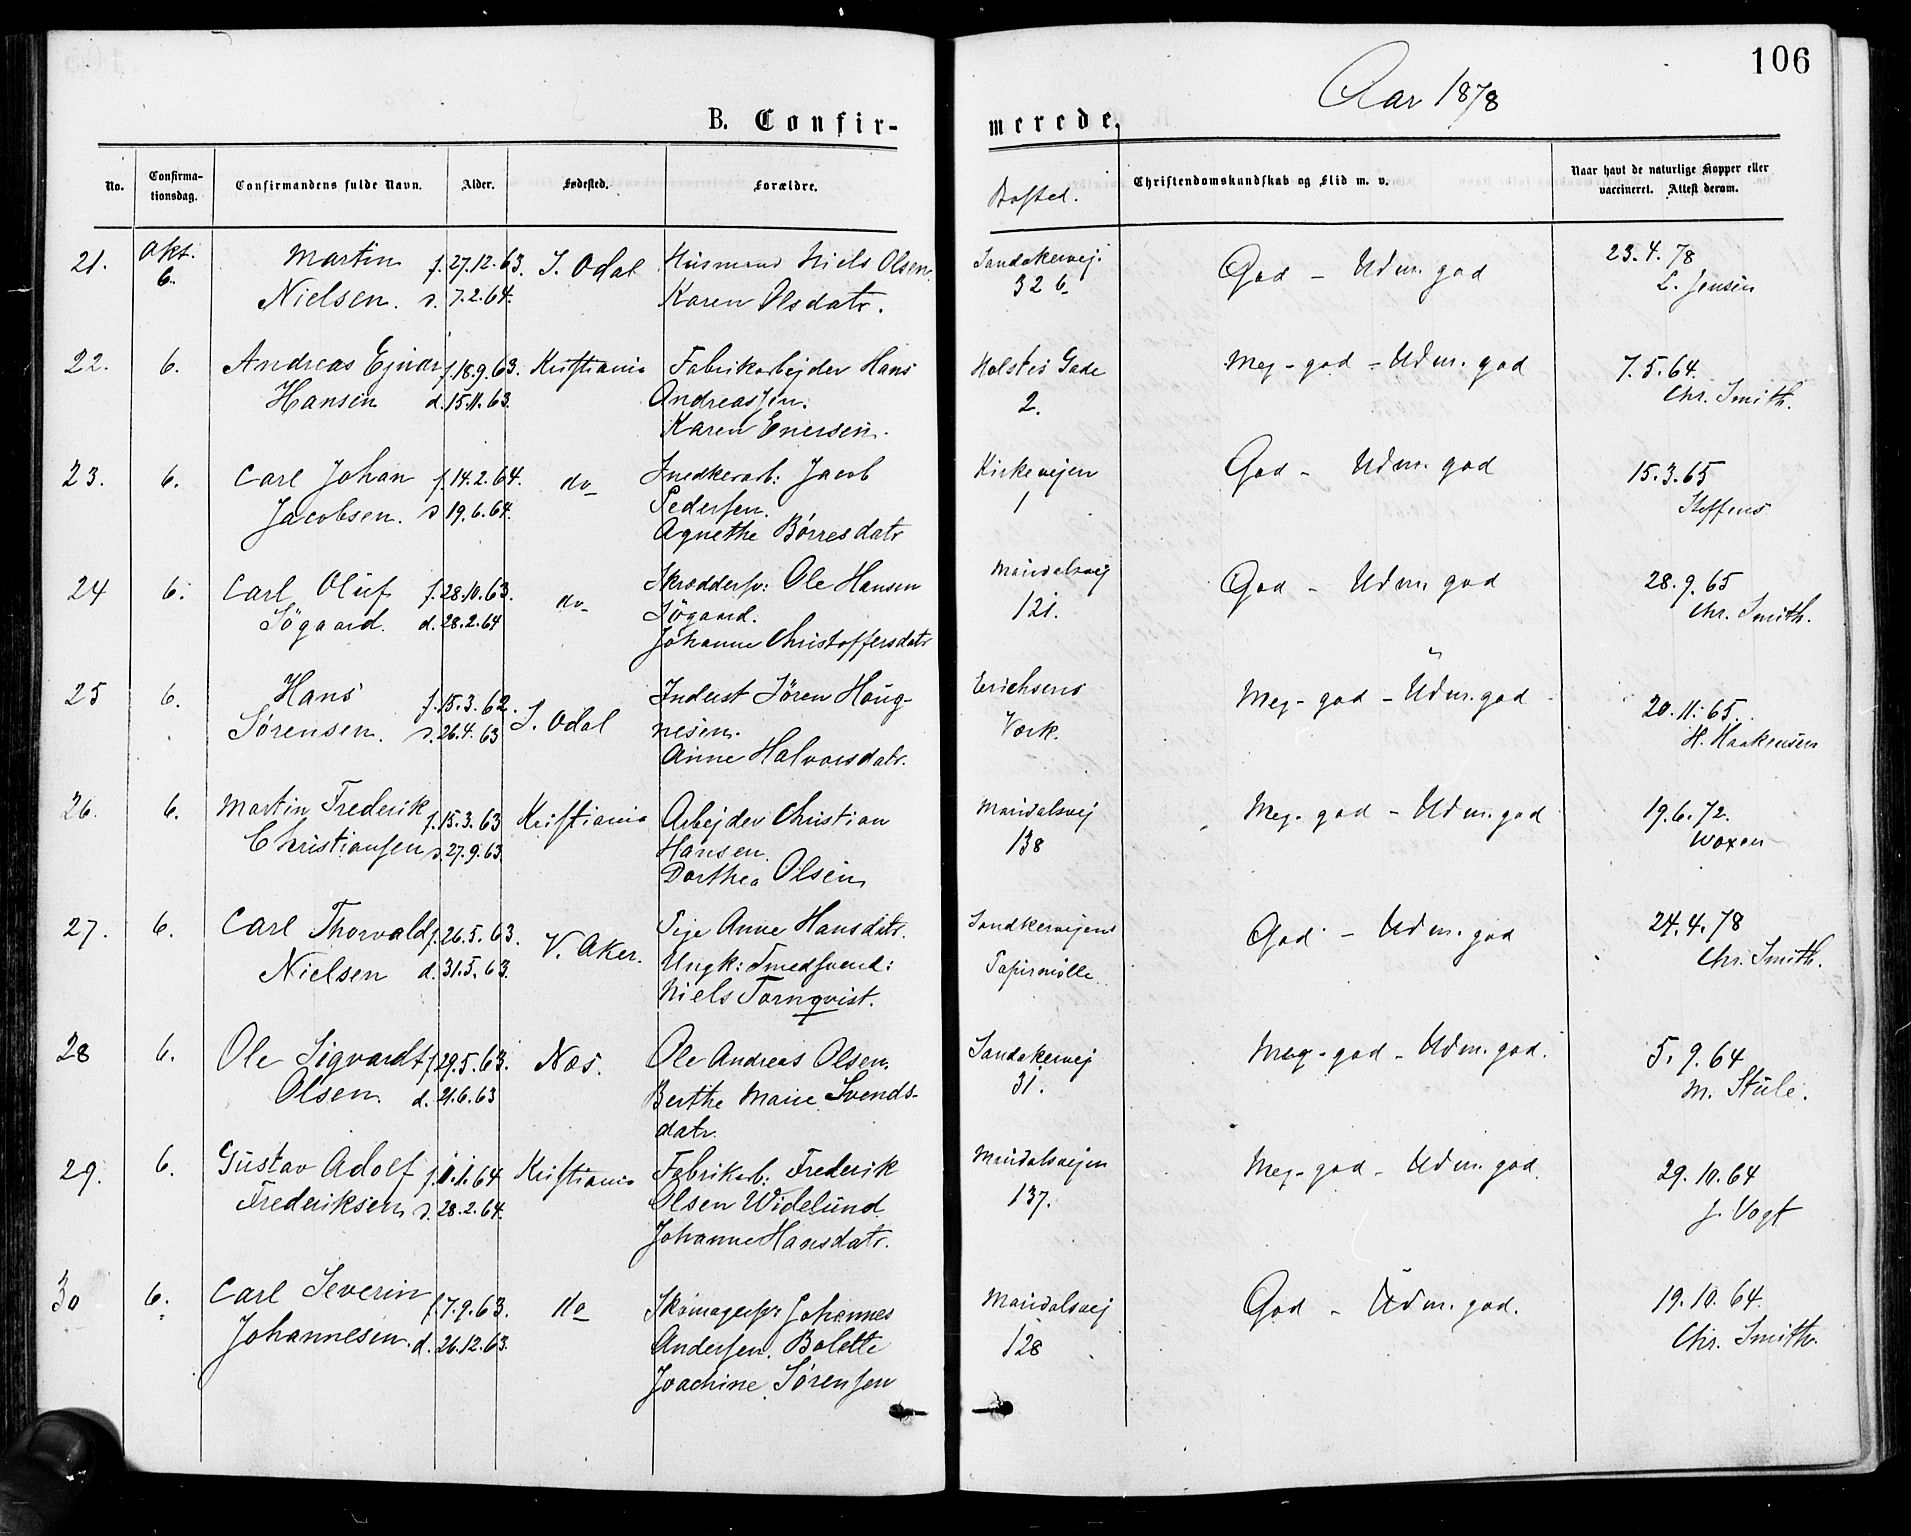 106
Aar 1878
B. Confir-
merede.
No.
Confirma-
tionsdag.
Confirmandens fulde Navn.
Alder.
Fødested.
Forældre.
Bosted.
Christendomskundskab og Flid m. v.
Naar havt de naturlige Kopper eller
vaccineret. Attest derom.
21. Okt. Martin f. 27.12.63. S. Odal Husmand Niels Olsen Sandakervej. God - Udm. god 23.4.78
6. Nielsen. d. 7.2.64. Karen Olsdatr. 32 b L. Jensen
22. 6. Andreas Ejnar f. 18.9.63. Kristiania Fabrikarbejder Hans Holstes Gade Meg-god - Udm. god 7.5.64.
Hansen d. 15.11.63. Andreassen. 2. Chr. Smith.
Karen Enersen.
23. 6. Carl Johan f. 14.2.64. do Snedkerarb: Jacob Kirkevejen God - Udm. god 15.3.65
Jacobsen. d 19.6.64. Pedersen. 1 Steffens
Agnethe Börresdatr
24 6. Carl Oluf f. 28.10.63. do Skræddersv: Ole Hansen Maridalsvej God - Udm. god 28.9.65
Sögaard. d. 28.2.64 Sögaard. 121. Chr. Smith.
Johanne Christoffersdatr
25 6. Hans f. 15.3.62. S. Odal Inderst Sören Houg- Erichsens Meg-god - Udm. god 20.11.65.
Sörensen. d. 26.4.63 nesen. Værk. H. Haakensen
Anne Halvorsdatr.
26. 6. Martin Frederik f. 15.3.63 Kristiania Arbejder Christian Maridalsvej Meg. god - Udm. god 19.6.72.
Christiansen d. 27.9.63. Hansen. 138 Woxen
Dorthea Olsen
27. 6. Carl Thorvald f. 26.5.63. V. Aker. Pige Anne Hansdatr. Sandkervejens God - Udm. god 24.4.78
Nielsen d. 31.5.63. Ungk: Smedsvend: Papirmölle. Chr. Smith.
Niels Tornqvist.
28 6. Ole Sigvardt f. 29.5.63. Næs. Ole Andreas Olsen. Sandakervej Meg-god - Udm. god. 5.9.64
Olsen. d. 21.6.63 Berthe Marie Svends- 31. M. Stüle.
datr.
29. 6. Gustav Adolf f. 1.1.64 Kristiania Fabrikarb: Frederik Maridalsvejen Meg-god - Udm. god. 29.10.64
Frederiksen d. 28.2.64. Olsen Widelund 137. J. Vogt
Johanne Hansdatr.
30 6. Carl Severin f. 7.9.63. do Skomagersv: Johannes Maridalsvej God - Udm. god. 19.10.64.
Johannesen. d. 26.12.63. Andersen. Bolette 128 Chr. Smith.
Joachine Sörensen